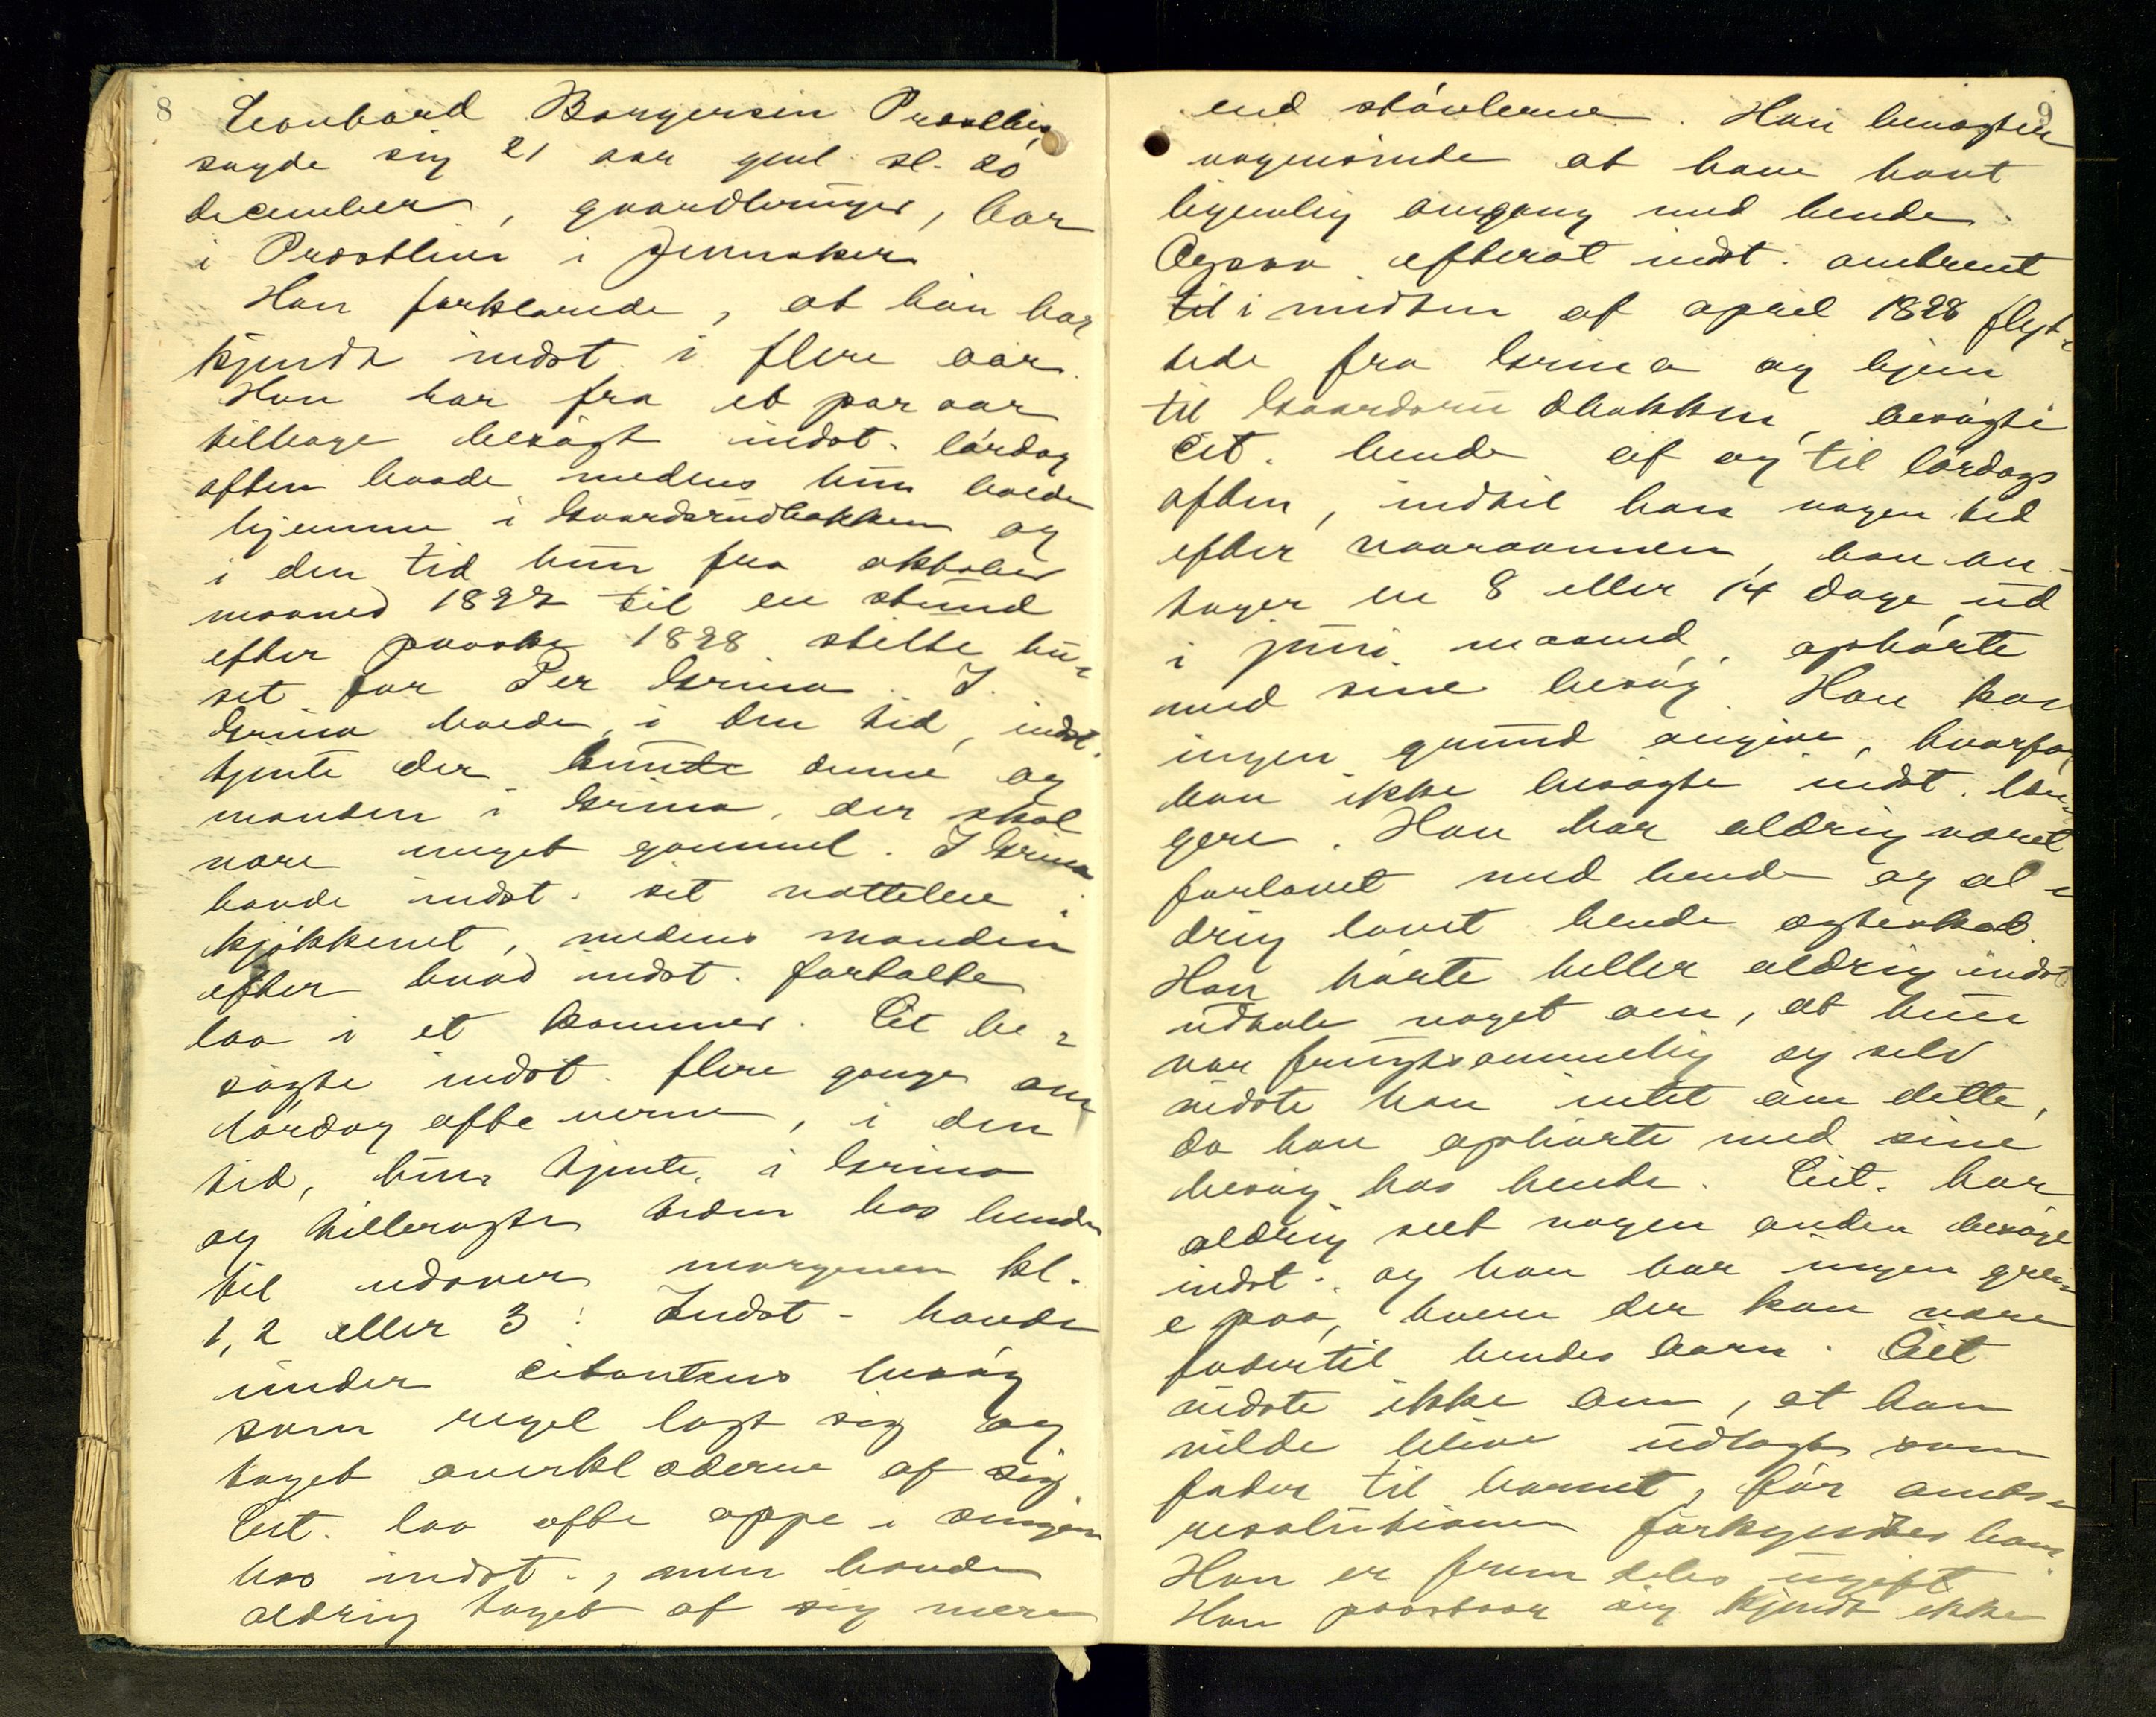 8
Leonhard Borgersen Præstlien
sagde sig 21 aar gml. sl. 20
december, gaardbruger, bor
i Præstlien i Jevnaker
Han forklarede, at han har
kjendt indst. i flere aar.
Han har fra et par aar
tilbage besøgt indst. lørdag
aften baade medens hun boede
hjemme i Gaardsrudbakken og
i den tid hun fra oktober
maaned 1897 til en stund
efter paaske 1898 stilte hu-
set for Per Grina. I
Grina boede, i den tid, indst.
tjente der kunde denne og
manden i Grina, der skal
være meget gammel. I Grina
havde indst. sit natteleie i
kjøkkenet, medens manden
efter hvad indst. fortalte
laa i et kammer. Cit be-
søgte indst. flere gange om
lørdag aftenerne, i den
tid, hun tjente i Grina
og tilbragte tiden hos hende
til udover morgenen kl.
1, 2 eller 3. Indst. havde
under citantens besøg
som regel lagt sig og
taget overklæderne af sig
Cit. laa ofte oppe i sengen
hos indst., men havde
aldrig taget af sig mere
9
end støvlerne. Han benægter
nogensinde at have havt
legemlig omgang med hende.
Ogsaa efterat indst. omtrent
til i midten af april 1898 flyt-
tede fra Grina og hjem
til Gaardsrudbakken, besøgte
Cit. hende af og til lørdags
aften, indtil han nogen tid
efter vaaraannen, han an-
tager en 8 eller 14 dage ud
i juni maaned, ophørte
med sine besøg. Han kan
ingen grund angive, hvorfor
han ikke besøgte indst. læn-
gere. Han har aldrig været
forlovet med hende og al-
drig lovet hende ægteskab.
Han hørte heller aldrig indst
udtale noget om, at hun
var frugtsommelig og selv
vidste han intet om dette,
da han ophørte med sine
besøg hos hende. Cit. har
aldrig seet nogen anden besøge
indst. og han har ingen grei-
e paa, hvem der kan være
fader til hendes barn. Cit
vidste ikke om, at han
vilde blive udlagt som
fader til barnet, før amts-
resolutionen forkyndtes ham.
Han er fremdeles ugift
Han paastaar sig kjendt ikke